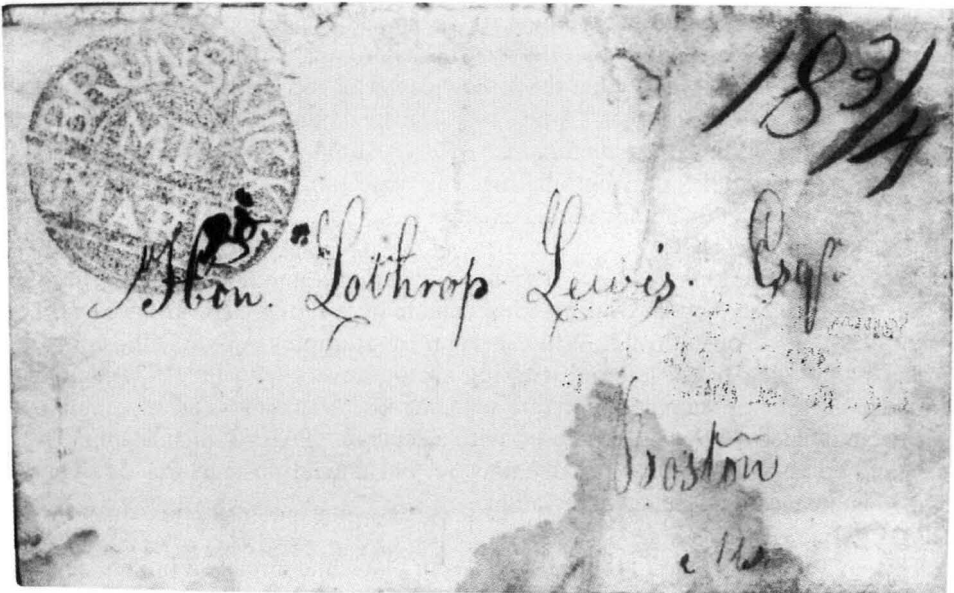 BRUNSWICK
ME
JAN
18 3/4
Hon. Lothrop Lewis. Esqr.
Boston